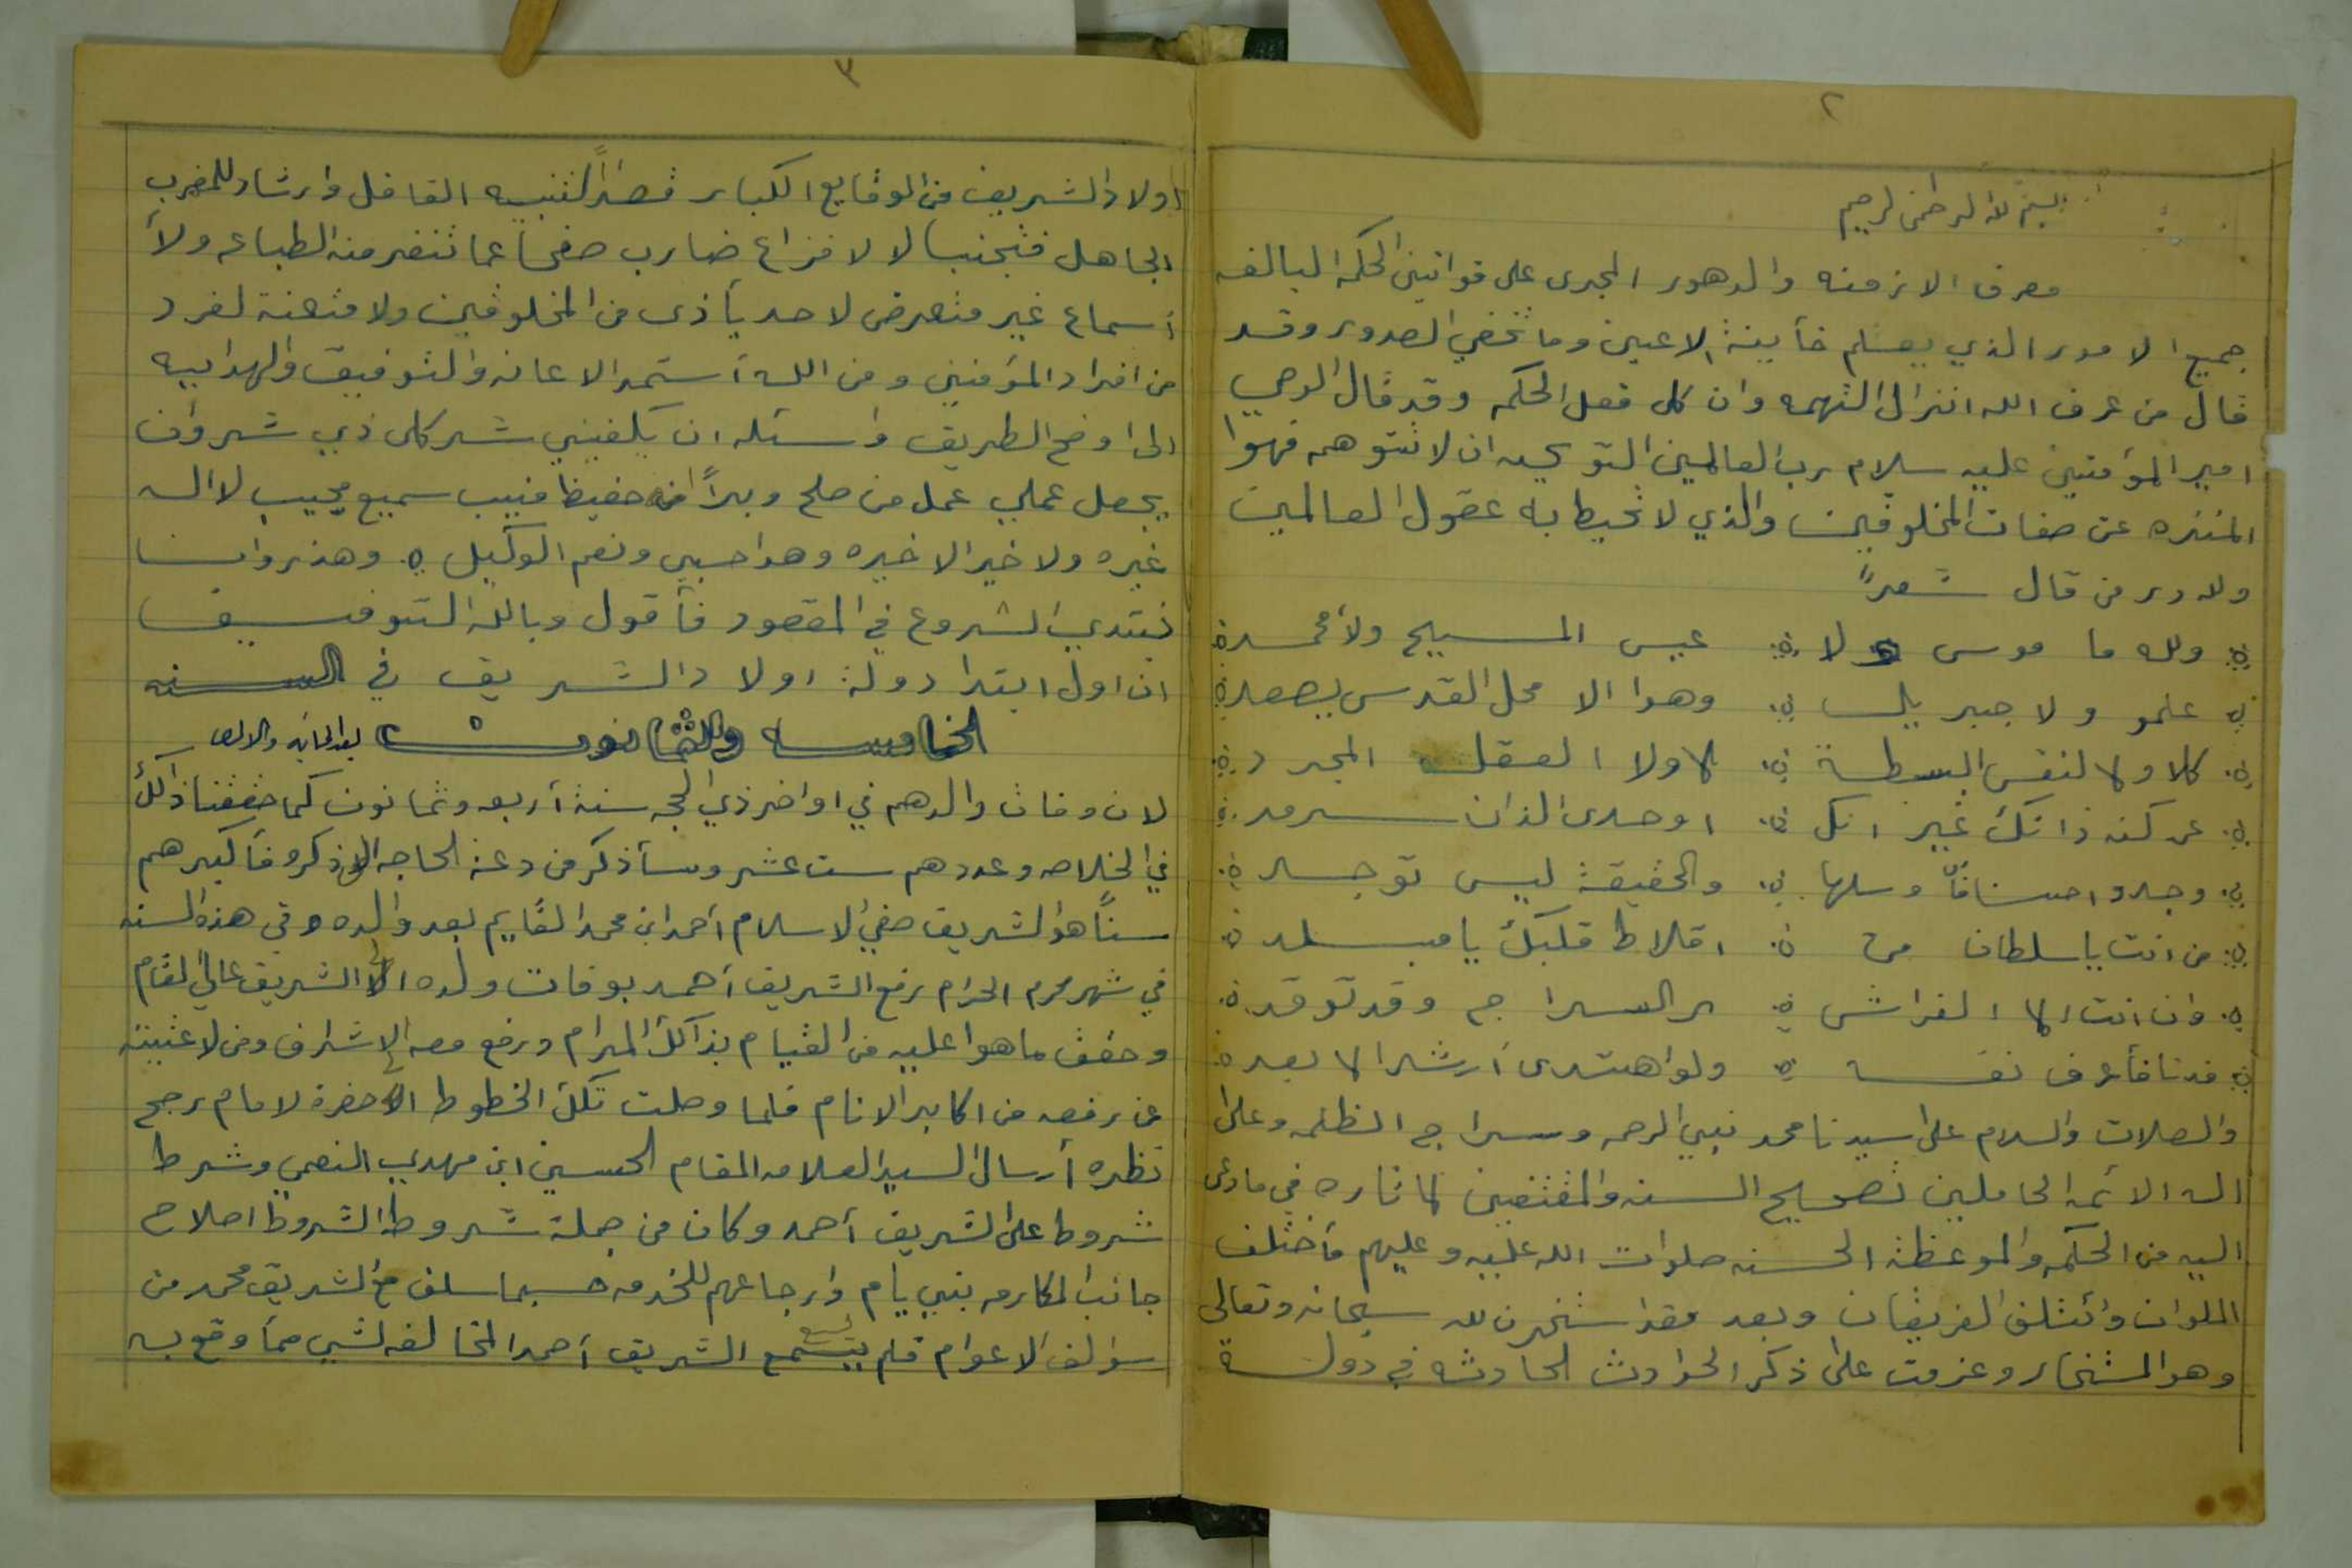 ٢
بسم الله الرحمن الرحيم
مصرف الازمنه والدهور المجرى على قوانين الحكمه البالغه
جميع الامور الذي يعلم خأينة الاعين وما تخفي الصدور وقد
قال من عرف الله انزال التهمه وان كل فعل الحكمه وقد قال الوصي
امير المؤمنين عليه سلام رب العالمين التوحيد ان لا تتوهمه فهوا
المنزه عن صفات المخلوقين والذي لا تحيط به عقول العالمين
ولله در من قال شعراً
ولله ما موسى ولا عيسى المسيح ولا محمد
علمو ولا جبريل وهوا الا محل القدس يصعد
كلا ولا لنفس البسطة لا ولا العقل المجرد
عن كنه ذاتك غير انك اوحدى الذات سرمد
وجدوا اضافاً وسلها والحقيقة ليس توجد
من انت يا سلطان من افلاط قبلك يا مبلد
وان انت الا الفراش راى السراج وقد توقد
فدنا فأحرف نفسه ولو اهتدى أرشدا لا بعد
والصلات والسلام على سيدنا محمد نبي الرحمه وسراج الظلمه وعلى
اله الائمه الحاملين تصحيح السنه والمقتفين لاثاره في ما دعى
اليه من الحكمه والموعظة الحسنه صلوات الله عليه وعليهم مأختلف
الملوان وائتلف الفريقان وبعد فقد استخرت لله سبحانه وتعالى
وهو المستخار وعزمت على ذكر الحوادث الحادثه في دولة
٣
اولاد الشريف من الوقايع الكبار قصداً لتنبيه الغافل وارشاد للمضرب
الجاهل فتجنبا لا لافزاع ضارب صفحاً عما تنفر منه الطباع ولأ
أسماع غير متعرض لاحد يأذى من المخلوقين ولا متعنة لفرد
من افراد المؤمنين ومن الله أستمد الاعانه والتوفيق والهدابيه
الى اوضح الطريق واسئله ان يكفيني شر كل ذي شر وان
يجعل عملي عمل من صلح وبراً انه حفيظ منيب سميع مجيب لا اله
غيره ولا خير الا خيره وهوا حسبي ونعم الوكيل وهذ روانا
نبتدي الشروع في المقصود فأقول وبالله التوفيق
ان اول ابتدا دولة اولاد الشريف في السنه
الخامسه والثمانون بعد المايه والالف
لان وفات والدهم في اواخر ذي الحجه سنة أربعه وثمانون كما حققنا ذالك
في الخلاصه وعددهم ست عشر وسأذكر من دعة الحاجه الى ذكره فأكبرهم
سناً هو الشريف صفي الاسلام أحمد ابن محمد القايم بعد والده وفي هذه السنه
في شهر محرم الحرام رفع الشريف أحمد بوفات والده الى الشريف عالي المقام
وحقق ما هوا عليه من القيام بذالك المرام ورفع معه الاشراف ومن لا غنيته
عن رفعه من اكابر الانام فلما وصلت تلك الخطوط الى حضرة لامام رجح
نظره أرسال السيد العلامه المقام الحسين ابن مهدي النعمي وشرط
شروط على الشريف أحمد وكان من جملة شروط الشروط اصلاح
جانب المكارمه بني يام وارجاعهم للخدمه حسبما سلف مع الشريف محمد من
سوالف الاعوام فلم يسع الشريف أحمد المخالفه لشي مما وقع به